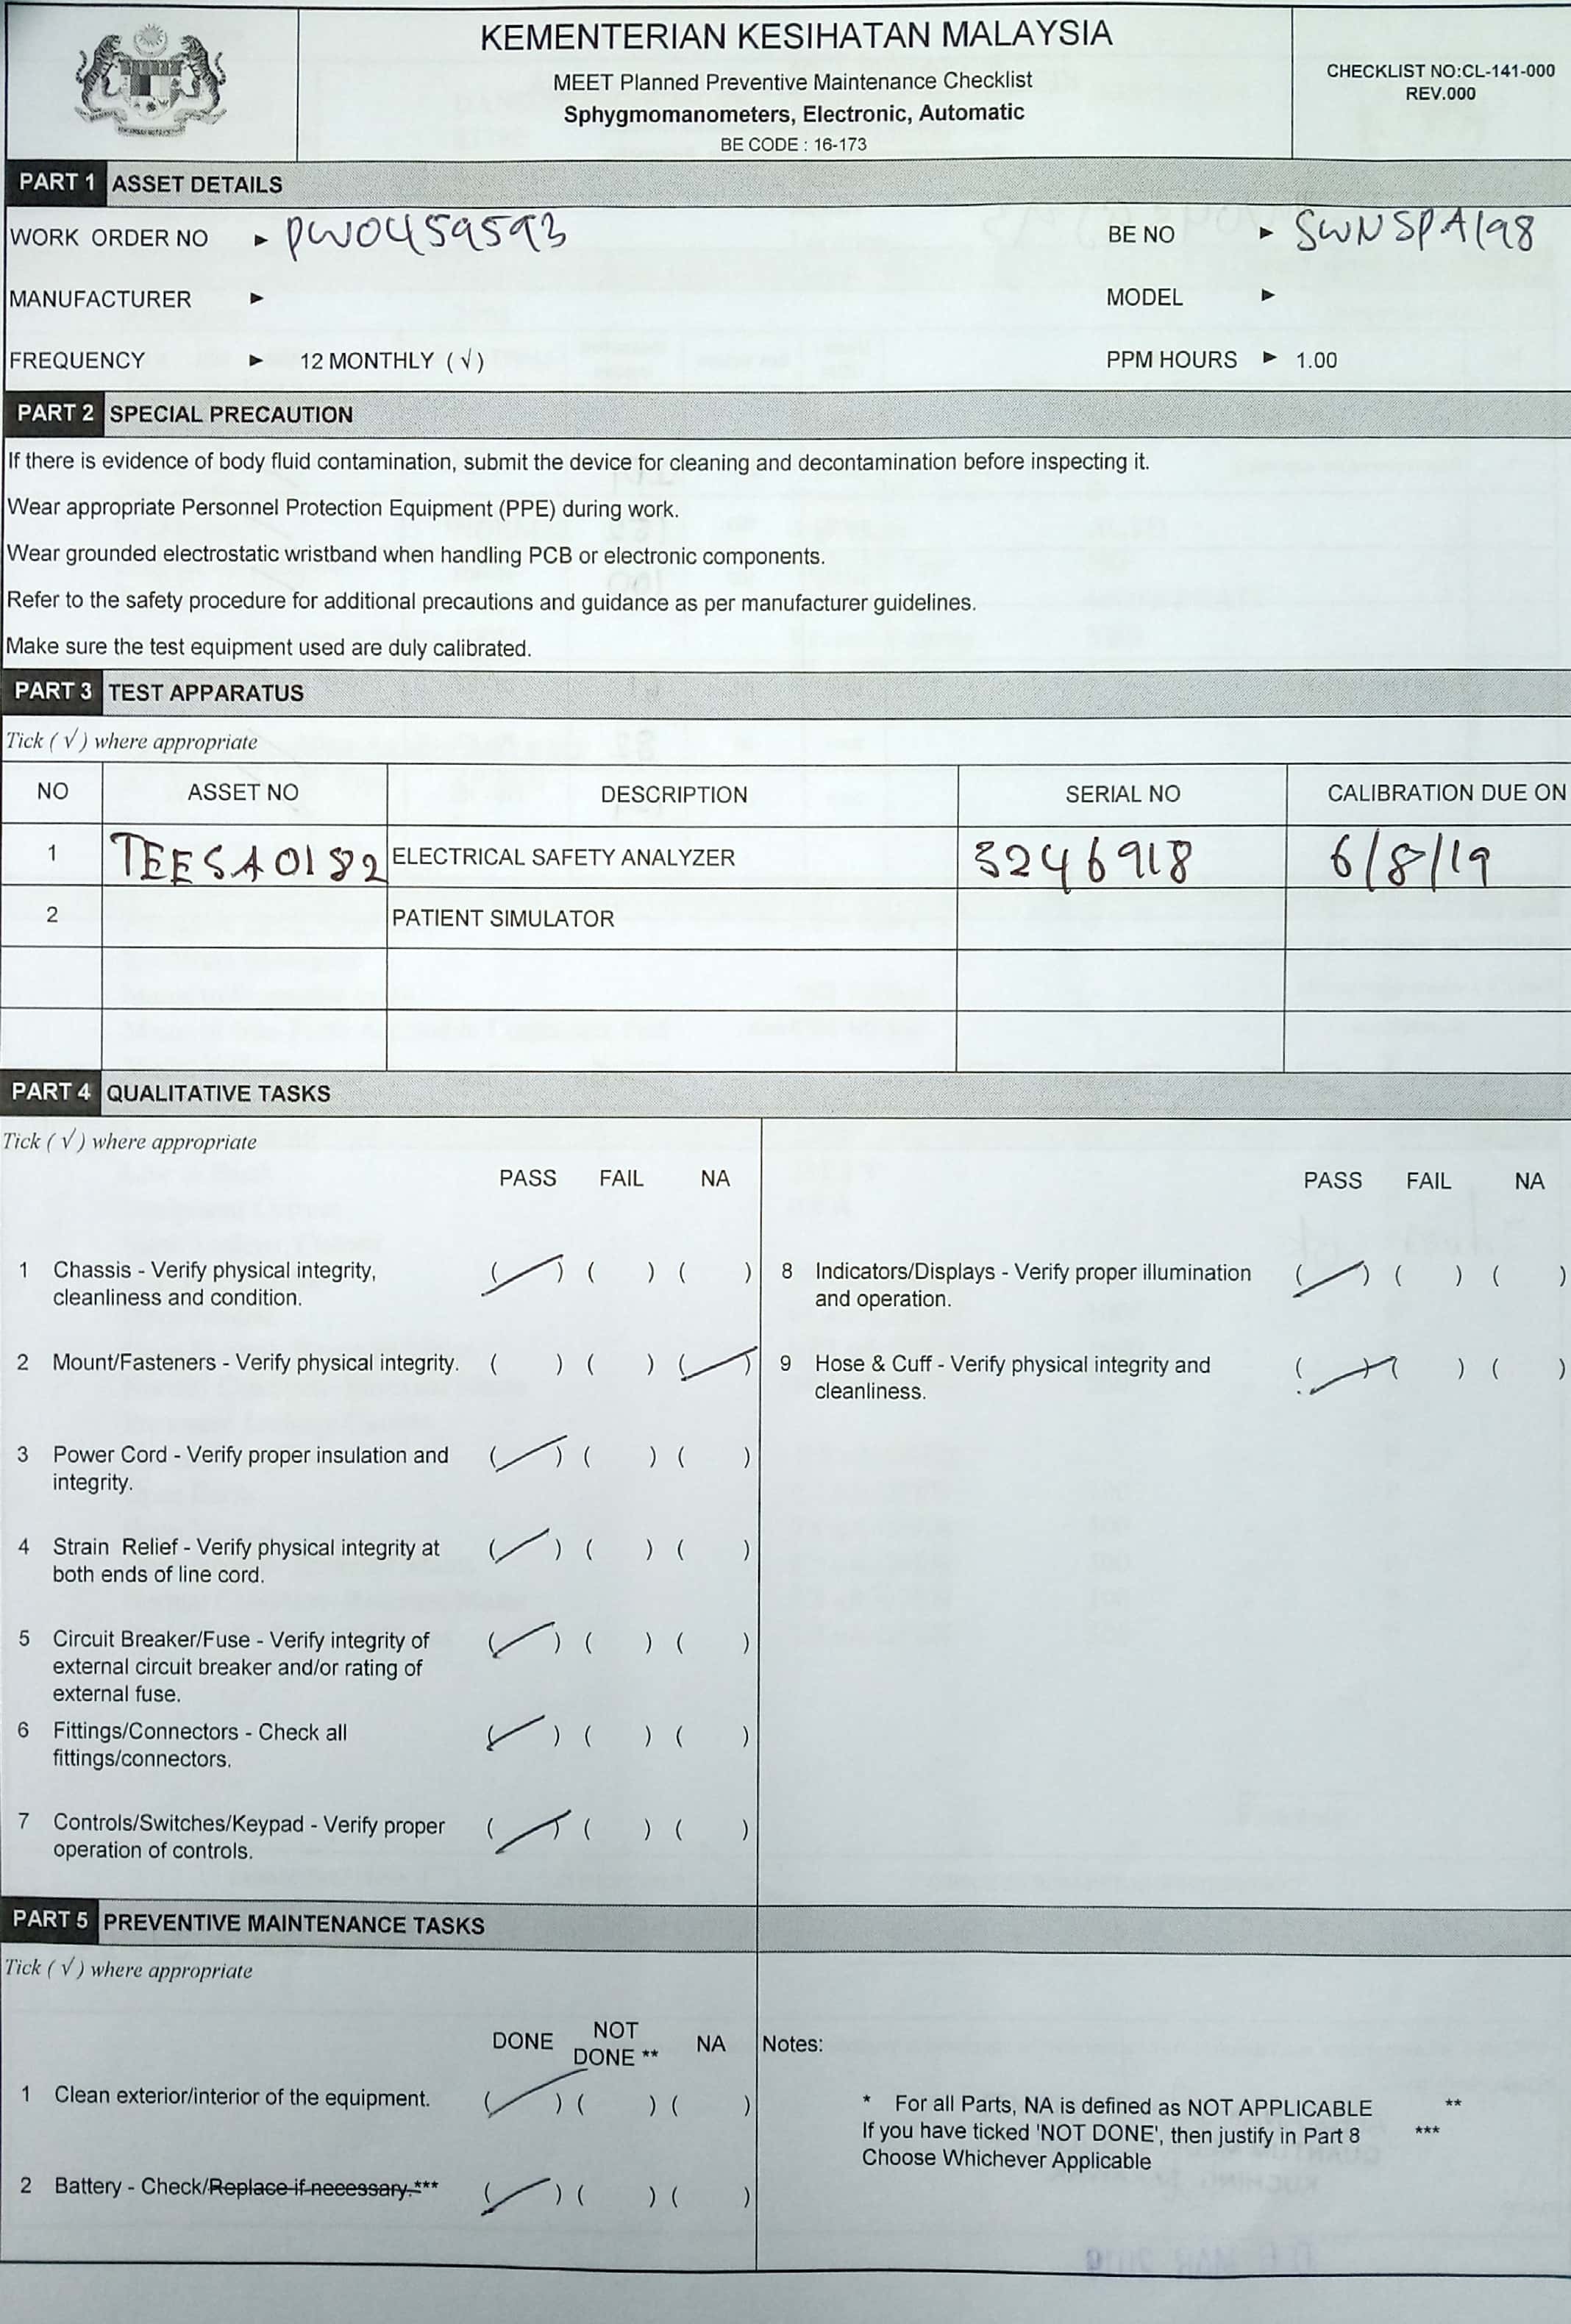 KEMENTERIAN KESIHATAN MALAYSIA
MEET Planned Preventive Maintenance Checklist
Sphygmomanometers, Electronic, Automatic
BE CODE : 16-173
CHECKLIST NO:CL-141-000
REV.000
PART 1 ASSET DETAILS
WORK ORDER NO ► PWO459593 BE NO ► SWNSPA198
MANUFACTURER ► MODEL ►
FREQUENCY ► 12 MONTHLY (√) PPM HOURS ► 1.00
PART 2 SPECIAL PRECAUTION
If there is evidence of body fluid contamination, submit the device for cleaning and decontamination before inspecting it.
Wear appropriate Personnel Protection Equipment (PPE) during work.
Wear grounded electrostatic wristband when handling PCB or electronic components.
Refer to the safety procedure for additional precautions and guidance as per manufacturer guidelines.
Make sure the test equipment used are duly calibrated.
PART 3 TEST APPARATUS
Tick (√) where appropriate
NO ASSET NO DESCRIPTION SERIAL NO CALIBRATION DUE ON
1 TEESA0182 ELECTRICAL SAFETY ANALYZER 3246918 6/8/19
2 PATIENT SIMULATOR
PART 4 QUALITATIVE TASKS
Tick (√) where appropriate
PASS FAIL NA
1 Chassis - Verify physical integrity, (✓) ( ) ( )
cleanliness and condition.
2 Mount/Fasteners - Verify physical integrity. ( ) ( ) (✓)
3 Power Cord - Verify proper insulation and (✓) ( ) ( )
integrity.
4 Strain Relief - Verify physical integrity at (✓) ( ) ( )
both ends of line cord.
5 Circuit Breaker/Fuse - Verify integrity of (✓) ( ) ( )
external circuit breaker and/or rating of
external fuse.
6 Fittings/Connectors - Check all (✓) ( ) ( )
fittings/connectors.
7 Controls/Switches/Keypad - Verify proper (✓) ( ) ( )
operation of controls.
PASS FAIL NA
8 Indicators/Displays - Verify proper illumination (✓) ( ) ( )
and operation.
9 Hose & Cuff - Verify physical integrity and (✓) ( ) ( )
cleanliness.
PART 5 PREVENTIVE MAINTENANCE TASKS
Tick (√) where appropriate
DONE NOT DONE ** NA
1 Clean exterior/interior of the equipment. (✓) ( ) ( )
2 Battery - Check/Replace if necessary.*** (✓) ( ) ( )
Notes:
* For all Parts, NA is defined as NOT APPLICABLE **
If you have ticked 'NOT DONE', then justify in Part 8 ***
Choose Whichever Applicable